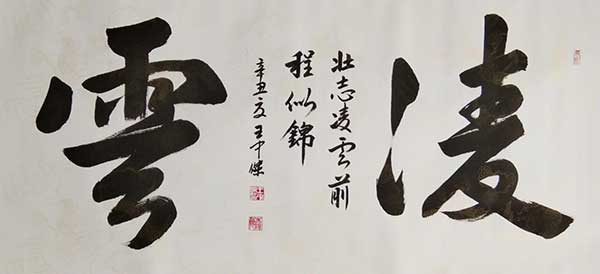 凌
壯志凌雲前
程似錦
辛丑夏王中傑
雲